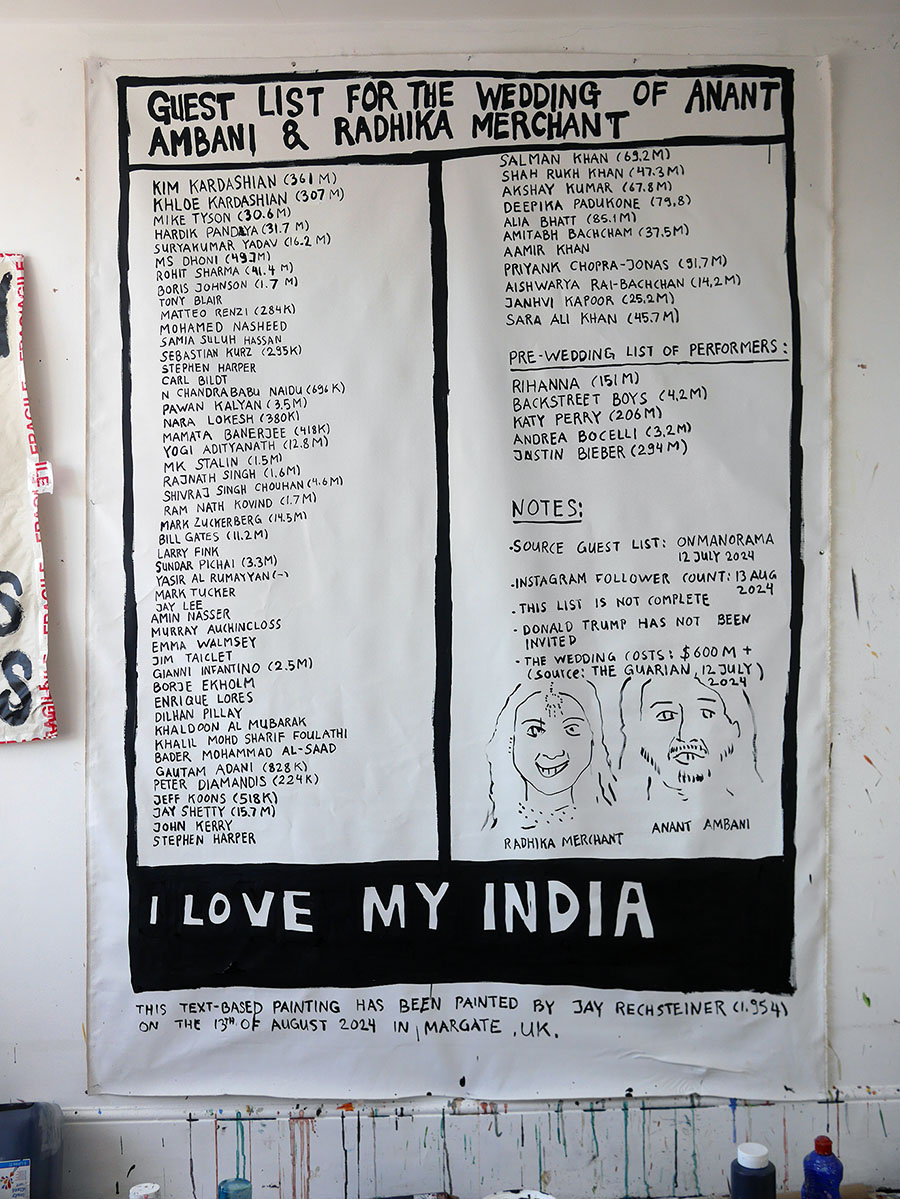 GUEST LIST FOR THE WEDDING OF ANANT
AMBANI & RADHIKA MERCHANT
KIM KARDASHIAN (361 M)
KHLOE KARDASHIAN (307 M)
MIKE TYSON (30.6 M)
HARDIK PANDAYA (31.7 M)
SURYAKUMAR YADAV (16.2 M)
MS DHONI (49.7M)
ROHIT SHARMA (41.4 M)
BORIS JOHNSON (1.7 M)
TONY BLAIR
MATTEO RENZI (284K)
MOHAMED NASHEED
SAMIA SULUH HASSAN
SEBASTIAN KURZ (295K)
STEPHEN HARPER
CARL BILDT
N CHANDRABABU NAIDU (696 K)
PAWAN KALYAN (3.5M)
NARA LOKESH (380K)
MAMATA BANERJEE (418K)
YOGI ADITYANATH (12.8 M)
MK STALIN (1.5M)
RAJNATH SINGH (1.6M)
SHIVRAJ SINGH CHOUHAN (4.6M)
RAM NATH KOVIND (1.7 M)
MARK ZUCKERBERG (14.5M)
BILL GATES (11.2M)
LARRY FINK
SUNDAR PICHAI (3.3M)
YASIR AL RUMAYYAN (-)
MARK TUCKER
JAY LEE
AMIN NASSER
MURRAY AUCHINCLOSS
EMMA WALMSEY
JIM TAICLET
GIANNI INFANTINO (2.5M)
BORJE EKHOLM
ENRIQUE LORES
DILHAN PILLAY
KHALDOON AL MUBARAK
KHALIL MOHD SHARIF FOULATHI
BADER MOHAMMAD AL-SAAD
GAUTAM ADANI (828K)
PETER DIAMANDIS (224K)
JEFF KOONS (518K)
JAY SHETTY (15.7 M)
JOHN KERRY
STEPHEN HARPER
SALMAN KHAN (69,2M)
SHAH RUKH KHAN (47.3M)
AKSHAY KUMAR (67.8M)
DEEPIKA PADUKONE (79,8)
ALIA BHATT (85.1M)
AMITABH BACHCHAM (37.5M)
AAMIR KHAN
PRIYANK CHOPRA-JONAS (91,7M)
AISHWARYA RAI-BACHCHAN (14,2M)
JANHVI KAPOOR (25,2M)
SARA ALI KHAN (45.7M)
PRE-WEDDING LIST OF PERFORMERS:
RIHANNA (151 M)
BACKSTREET BOYS (4,2M)
KATY PERRY (206 M)
ANDREA BOCELLI (3,2M)
JUSTIN BIEBER (294 M)
NOTES:
·SOURCE GUEST LIST: ONMANORAMA
12 JULY 2024
·INSTAGRAM FOLLOWER COUNT: 13 AUG
2024
·THIS LIST IS NOT COMPLETE
·DONALD TRUMP HAS NOT BEEN
INVITED
·THE WEDDING COSTS: $600 M +
(SOURCE: THE GUARIAN, 12 JULY)
2024
RADHIKA MERCHANT
ANANT AMBANI
I LOVE MY INDIA
THIS TEXT-BASED PAINTING HAS BEEN PAINTED BY JAY RECHSTEINER (1.954)
ON THE 13TH OF AUGUST 2024 IN MARGATE, UK.
FRAGILE